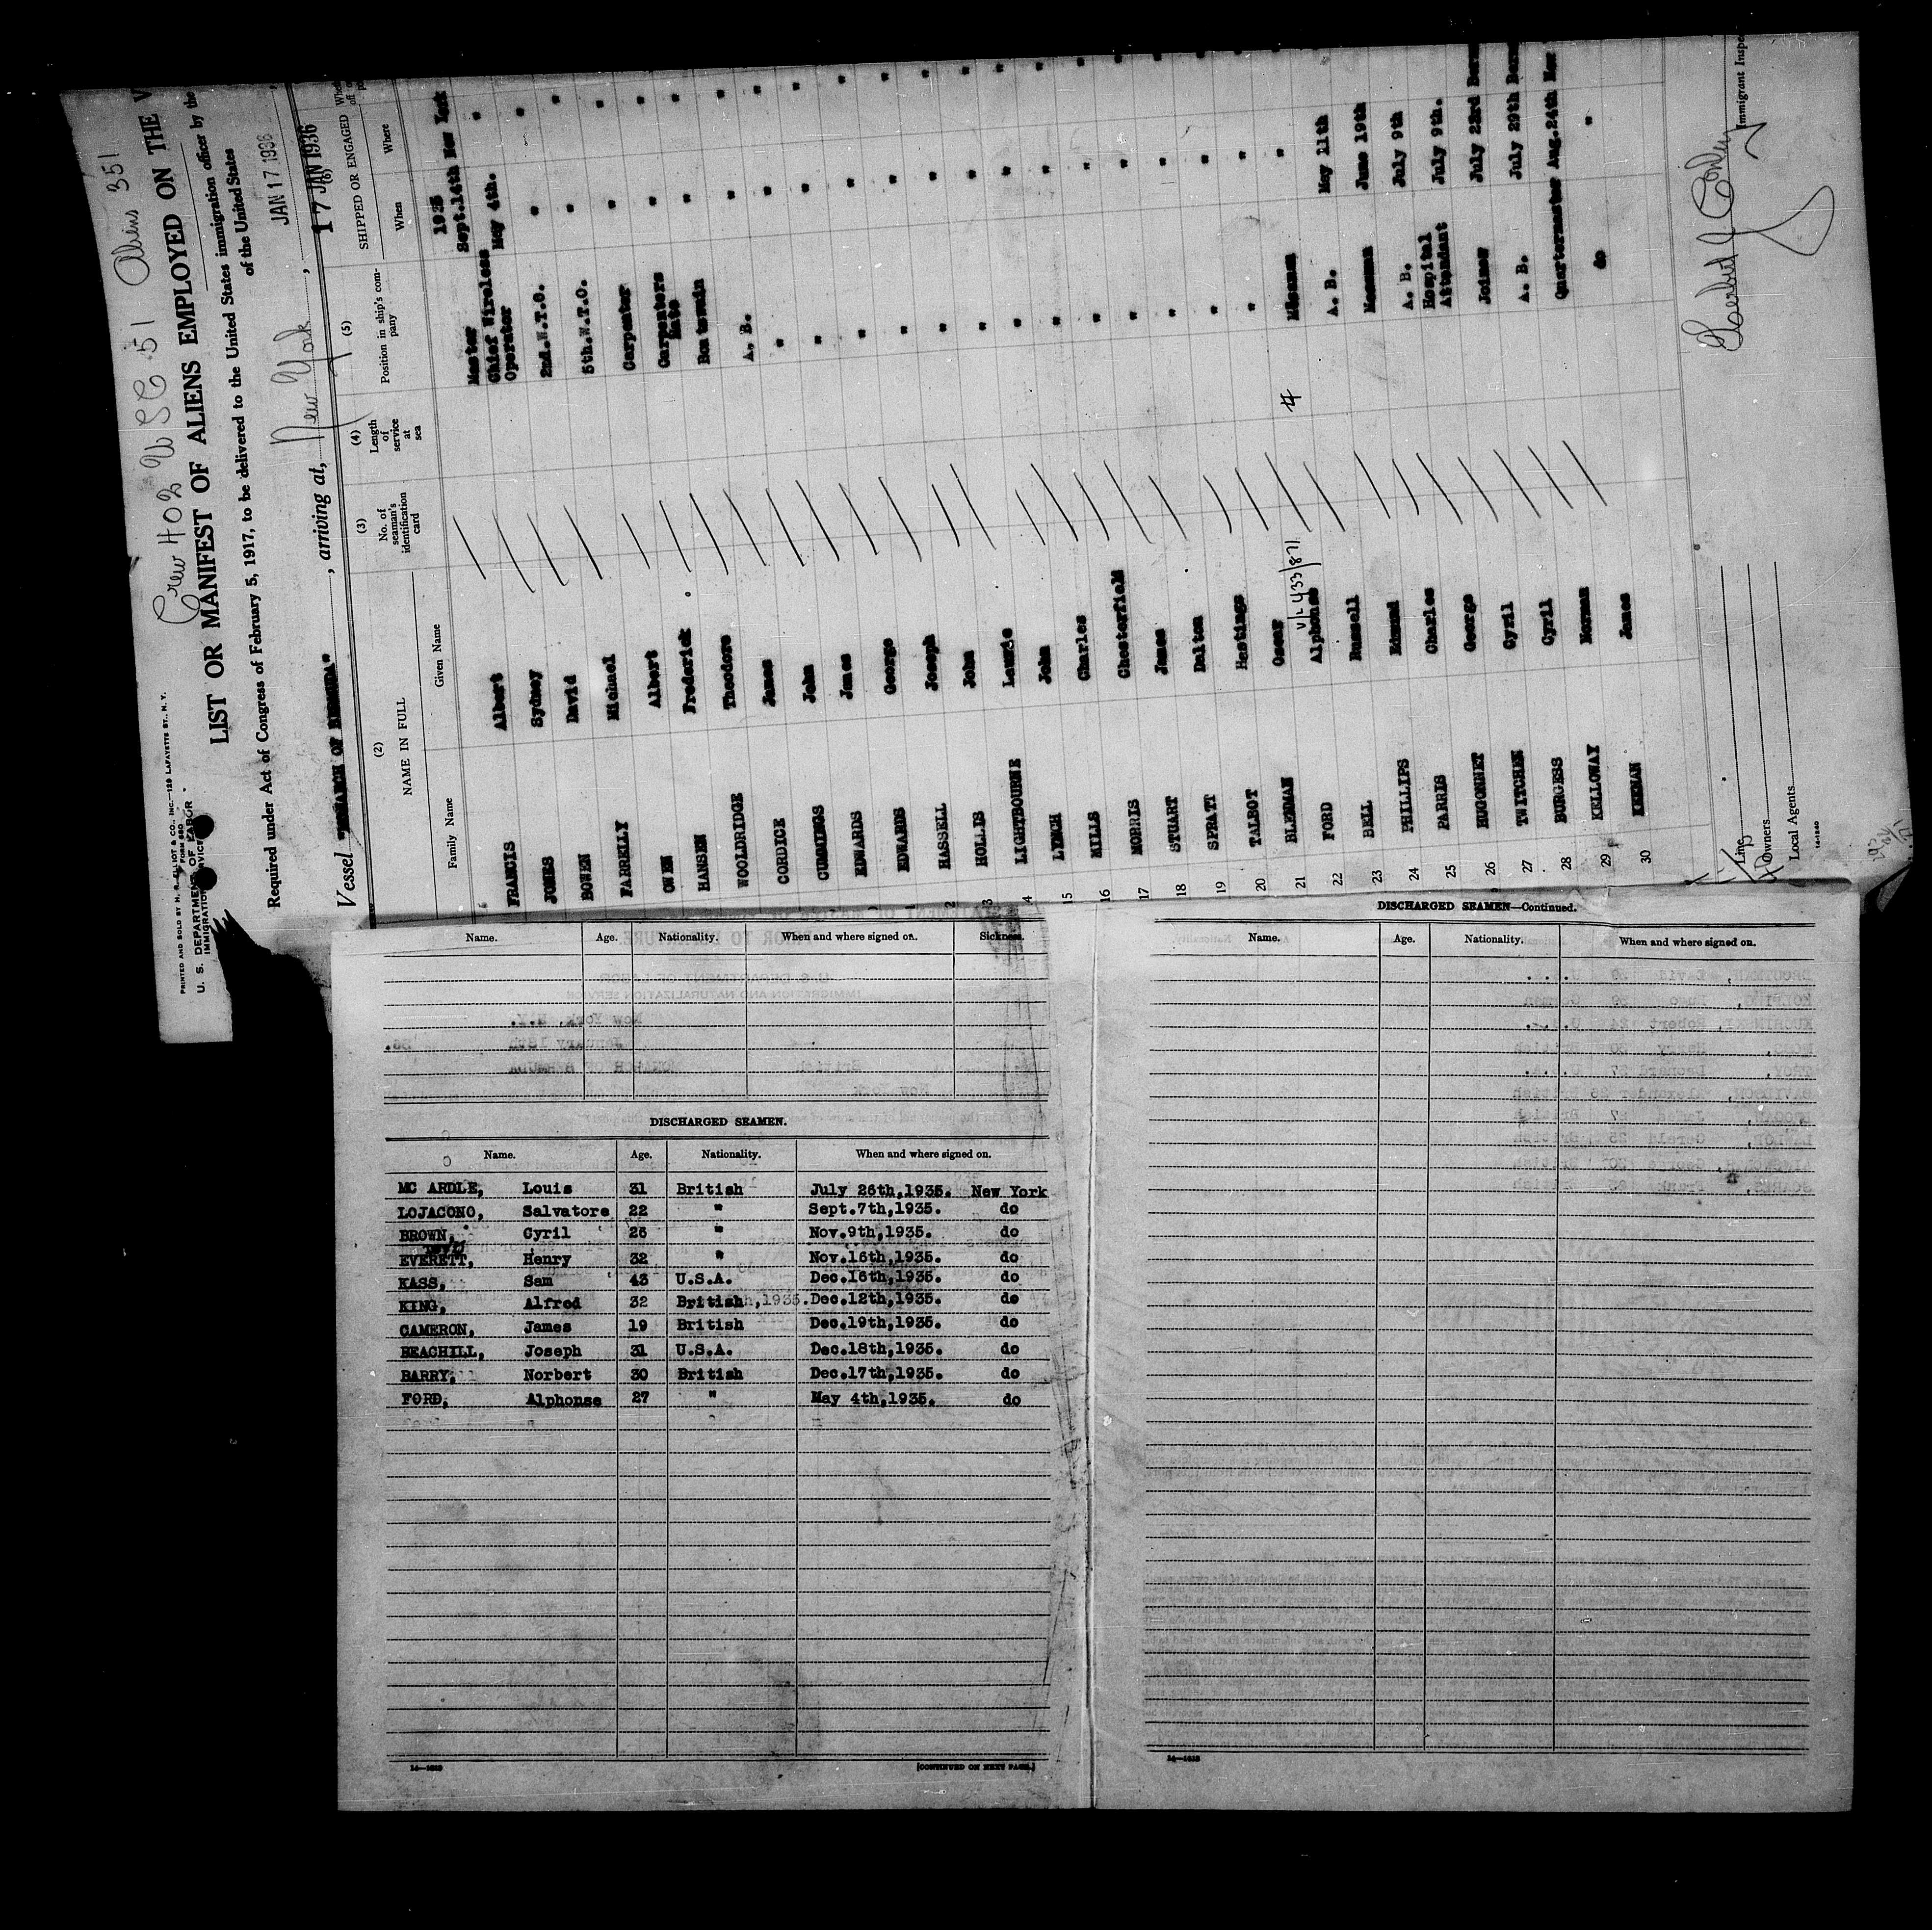 Crew 402 USC 51 Aliens 351
PRINTED AND SOLD BY H. R. ELLIOT & CO., INC.—129 LAFAYETTE ST., N. Y.
FORM 680
U. S. DEPARTMENT OF LABOR
IMMIGRATION SERVICE
LIST OR MANIFEST OF ALIENS EMPLOYED ON THE V
Required under Act of Congress of February 5, 1917, to be delivered to the United States immigration officer by the
of the United States
JAN 17 1936
Vessel "MONARCH OF BERMUDA", arriving at, New York,
17 JAN 1936
(2) (3) (4) (5) (6)
NAME IN FULL No. of seaman's identification card Length of service at sea Position in ship's company SHIPPED OR ENGAGED
Family Name Given Name When Where
1935
FRANCIS Albert Master Sept.14th New York
JONES Sydney Chief Wireless Operator May 4th. "
BOWEN David 2nd.W.T.O. " "
FARRELLY Michael 5th.W.T.O. " "
OWEN Albert Carpenter " "
HANSEN Frederick Carpenters Mate " "
WOOLDRIDGE Theodore Boatswain " "
CORDICE James A. B. " "
CUMMINGS John " " "
EDWARDS James " " "
EDWARDS George " " "
HASSELL Joseph " " "
HOLLIS John " " "
LIGHTBOURNE Laurie " " "
15 LYNCH John " " "
16 MILLS Charles " " "
17 MORRIS Chesterfield " " "
18 STUART James " " "
19 SPRATT Dalton " " "
20 TALBOT Hastings " " "
21 BLENMAN Oscar " " "
22 FORD Alphonse Messman "
23 BELL Russell A. B. May 11th
24 PHILLIPS Edmund Messman June 19th
25 PARRIS Charles A. B. July 9th
26 HUGONNET George Hospital Attendant July 9th.
27 TWITCHEN Cyril Joiner July 23rd
28 BURGESS Cyril A. B. July 29th
29 KELLOWAY Norman Quartermaster Aug.24th New
30 KEENAN James do "
Line
Owners
Local Agents
14-1240
Immigrant Inspe
Name. Age. Nationality. When and where signed on. Sickness.
DISCHARGED SEAMEN.
Name. Age. Nationality. When and where signed on.
MC ARDLE, Louis 31 British July 26th,1935. New York
LOJACONO, Salvatore 22 " Sept.7th,1935. do
BROWN, Cyril 26 " Nov.9th,1935. do
EVERETT, Henry 32 " Nov.16th,1935. do
KASS, Sam 43 U.S.A. Dec.16th,1935. do
KING, Alfred 32 British Dec.12th,1935. do
CAMERON, James 19 British Dec.19th,1935. do
BEACHILL, Joseph 31 U.S.A. Dec.18th,1935. do
BARRY, Norbert 30 British Dec.17th,1935. do
FORD, Alphonse 27 " May 4th,1935. do
[CONTINUED ON NEXT PAGE.]
DISCHARGED SEAMEN—Continued.
Name. Age. Nationality. When and where signed on.